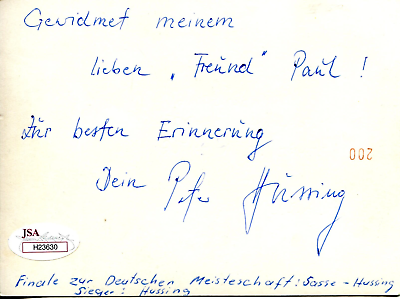 Gewidmet meinem
lieben "Freund" Paul !
Zur besten Erinnerung
Dein Peter Hüssing
002
JSA
H23630
Finale zur Deutschen Meisteschaft: Sasse - Hussing
Sieger: Hussing